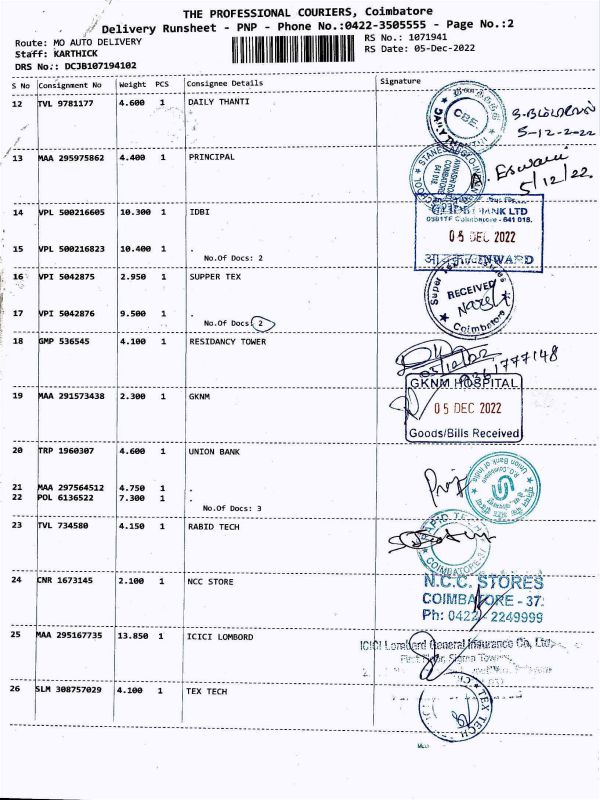 THE PROFESSIONAL COURIERS, Coimbatore
Delivery Runsheet - PNP - Phone No.:0422-3505555 - Page No.:2
Route: MO AUTO DELIVERY
Staff: KARTHICK
DRS No.: DCJB107194102
RS No.: 1071941
RS Date: 05-Dec-2022
S No Consignment No Weight PCS Consignee Details Signature
12 TVL 9781177 4.600 1 DAILY THANTI
CBE.
5-12-2022
13 MAA 295975862 4.400 1 PRINCIPAL
Eswari
5/12/22.
14 VPL 500216605 10.300 1 IDBI
BANK LTD
Coimbatore - 641 018.
05 DEC 2022
INWARD
15 VPL 500216823 10.400 1 .
No.Of Docs: 2
16 VPI 5042875 2.950 1 SUPPER TEX
Super
RECEIVED
Coimbatore
17 VPI 5042876 9.500 1 .
No.Of Docs: 2
18 GMP 536545 4.100 1 RESIDANCY TOWER
19 MAA 291573438 2.300 1 GKNM
GKNM HOSPITAL
05 DEC 2022
Goods/Bills Received
20 TRP 1960307 4.600 1 UNION BANK
Union Bank of India
21 MAA 297564512 4.750 1 .
22 POL 6136522 7.300 1 .
No.Of Docs: 3
23 TVL 734580 4.150 1 RABID TECH
RAPID TECH
COIMBATORE-37
24 CNR 1673145 2.100 1 NCC STORE
N.C.C. STORES
COIMBATORE - 37.
Ph: 0422 - 2249999
25 MAA 295167735 13.850 1 ICICI LOMBORD
ICICI Lombard General Insurance Co. Ltd.
First Floor, Sigma Tower
26 SLM 308757029 4.100 1 TEX TECH
TEX TECH